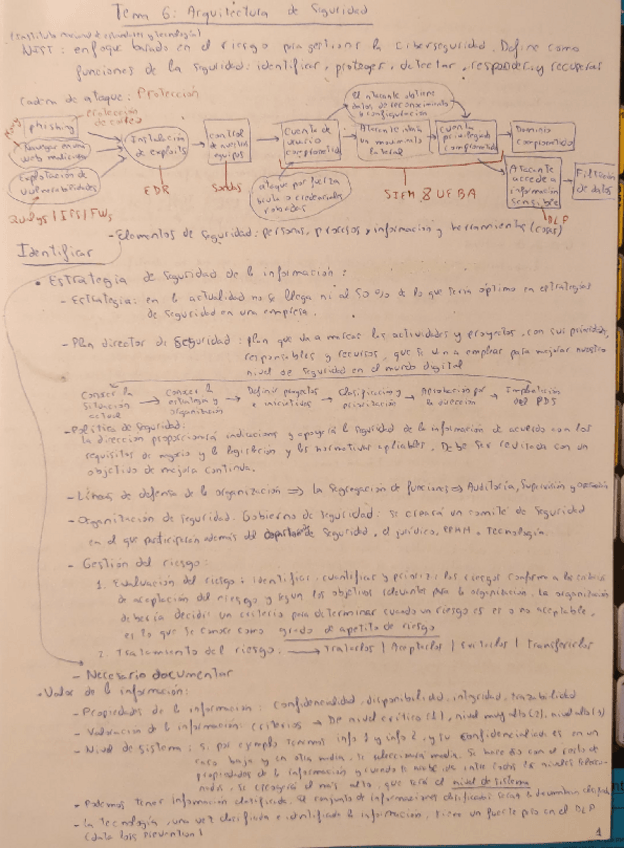 Tema 6: Arquitectura de Seguridad
(Instituto nacional de estándares y tecnología)
NIST: enfoque basado en el riesgo para gestionar la ciberseguridad. Define como
funciones de la seguridad: identificar, proteger, detectar, responder y recuperar
Cadena de ataque: Protección
Protección de correo
phishing
Navegar en una web maliciosa
Explotación de vulnerabilidades
Instalación de exploits
Control de nuestros equipos
Cuenta de usuario comprometida
El atacante obtiene datos de reconocimiento o configuración
Atacante un movimiento lateral
Cuenta privilegiada comprometida
Dominio comprometido
Atacante accede a información sensible
Filtración de datos
ataque por fuerza bruta o credenciales robadas
EDR
Sondas
SIEM & UEBA
DLP
Qualys / IPS / FWs
- Elementos de seguridad: personas, procesos, información y herramientas (cosas)
Identificar
• Estrategia de seguridad de la información:
- Estrategia: en la actualidad no se llega ni al 50% de lo que sería óptimo en estrategias
de seguridad en una empresa.
- Plan director de seguridad: plan que va a marcar las actividades y proyectos, con sus prioridades,
responsables y recursos, que se van a emplear para mejorar nuestro
nivel de seguridad en el mundo digital
Conocer la situación actual → Conocer la estrategia y organización → Definir proyectos e iniciativas → Clasificación y priorización → Aprobación por la dirección → Implantación del PDS
- Política de seguridad:
la dirección proporcionará indicaciones y apoyará la seguridad de la información de acuerdo con los
requisitos de negocio y la legislación y las normativas aplicables. Debe ser revisada con un
objetivo de mejora continua.
- Líneas de defensa de la organización ⇒ la segregación de funciones ⇒ Auditoría, Supervisión y Operación
- Organización de seguridad. Gobierno de seguridad: se creará un comité de seguridad
en el que participarán además del departamento de seguridad, el jurídico, RRHH, Tecnología.
- Gestión del riesgo:
1. Evaluación del riesgo: identificar, cuantificar y priorizar los riesgos conforme a los criterios
de aceptación del riesgo y según los objetivos relevantes para la organización. La organización
debería decidir un criterio para determinar cuando un riesgo es o no aceptable,
es lo que se conoce como grado de apetito de riesgo
2. Tratamiento del riesgo: → Tratarlos | Aceptarlos | Evitarlos | Transferirlos
- Necesario documentar
• Valor de la información:
- Propiedades de la información: confidencialidad, disponibilidad, integridad, trazabilidad
- Valoración de la información: criterios → De nivel crítico (1), nivel muy alto (2), nivel alto (3)
- Nivel de sistema: si por ejemplo tenemos info 1 y info 2, y su confidencialidad es en un
caso baja y en otro media, se seleccionará media. Se hace eso con el resto de
propiedades de la información y cuando se acabe, de entre todos los niveles
se escogerá el más alto, que será el nivel de sistema
- Podemos tener información clasificada. El conjunto de informaciones clasificadas
- La Tecnología, una vez clasificada e identificada la información, tiene un fuerte peso en el DLP
(data loss prevention)
1